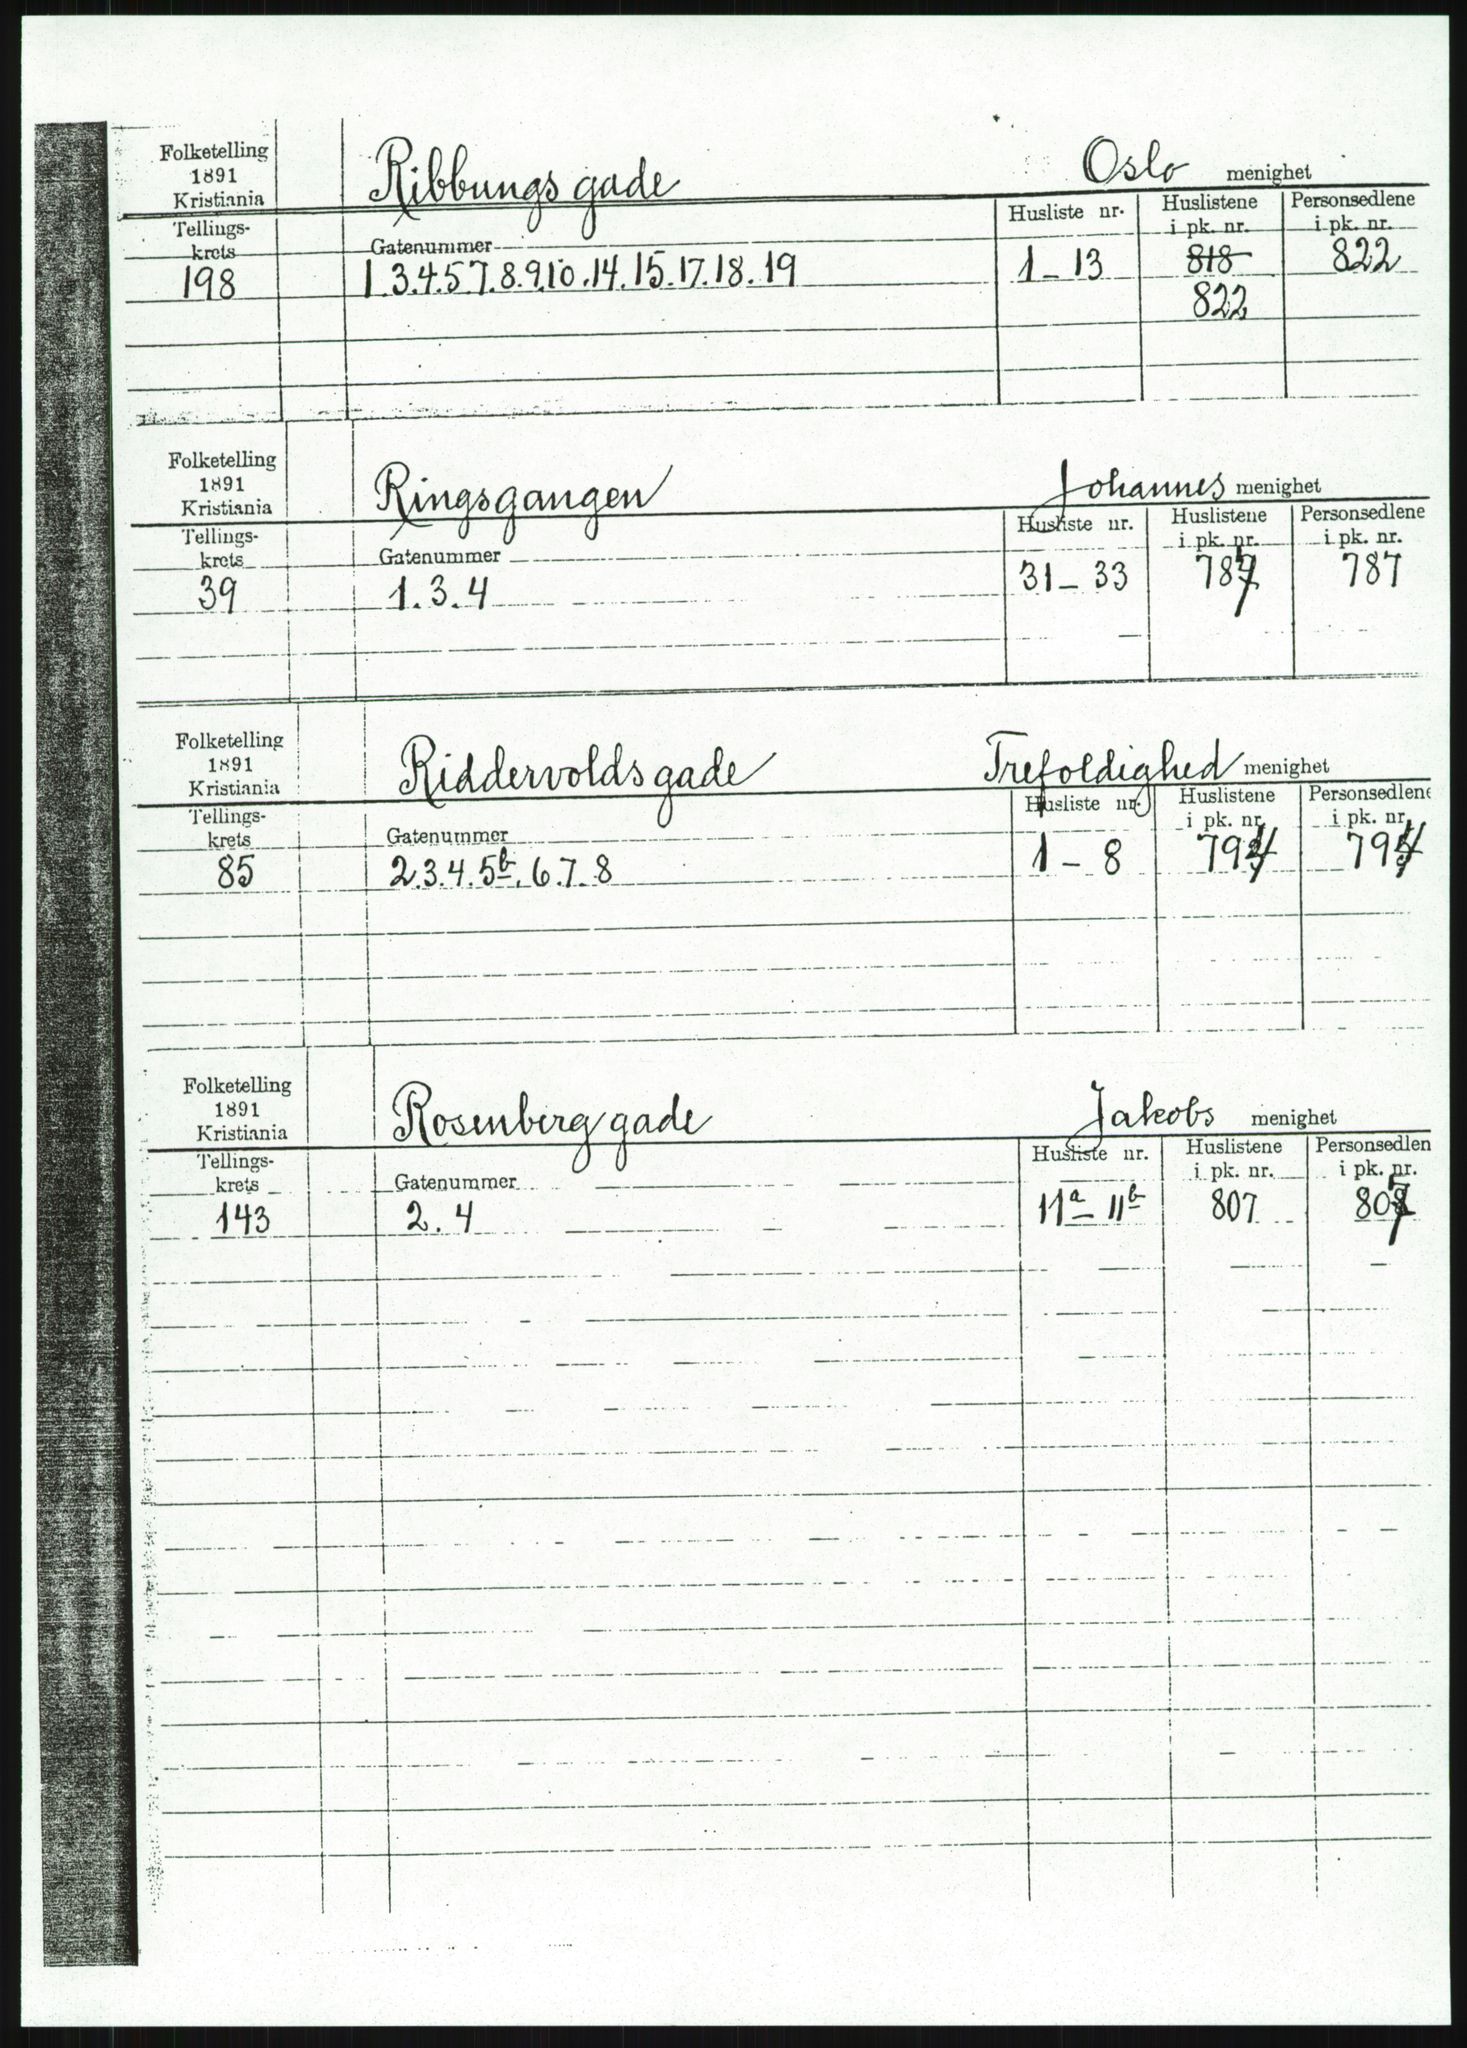 Folketelling
1891
Kristiania
Ribbungs gade
Oslo menighet
Tellings-
krets
Gatenummer
Husliste nr.
Huslistene
i pk. nr.
Personsedlene
i pk. nr.
198
1.3.4.5.7.8.9.10.14.15.17.18.19
1-13
818
822
822
Folketelling
1891
Kristiania
Ringsgangen
Johannes menighet
Tellings-
krets
Gatenummer
Husliste nr.
Huslistene
i pk. nr.
Personsedlene
i pk. nr.
39
1.3.4
31-33
787
787
Folketelling
1891
Kristiania
Riddervolds gade
Trefoldighed menighet
Tellings-
krets
Gatenummer
Husliste nr.
Huslistene
i pk. nr.
Personsedlene
i pk. nr.
85
2.3.4.5b.6.7.8
1-8
794
794
Folketelling
1891
Kristiania
Rosenberg gade
Jakobs menighet
Tellings-
krets
Gatenummer
Husliste nr.
Huslistene
i pk. nr.
Personsedlen
i pk. nr.
143
2.4
11a 11b
807
807